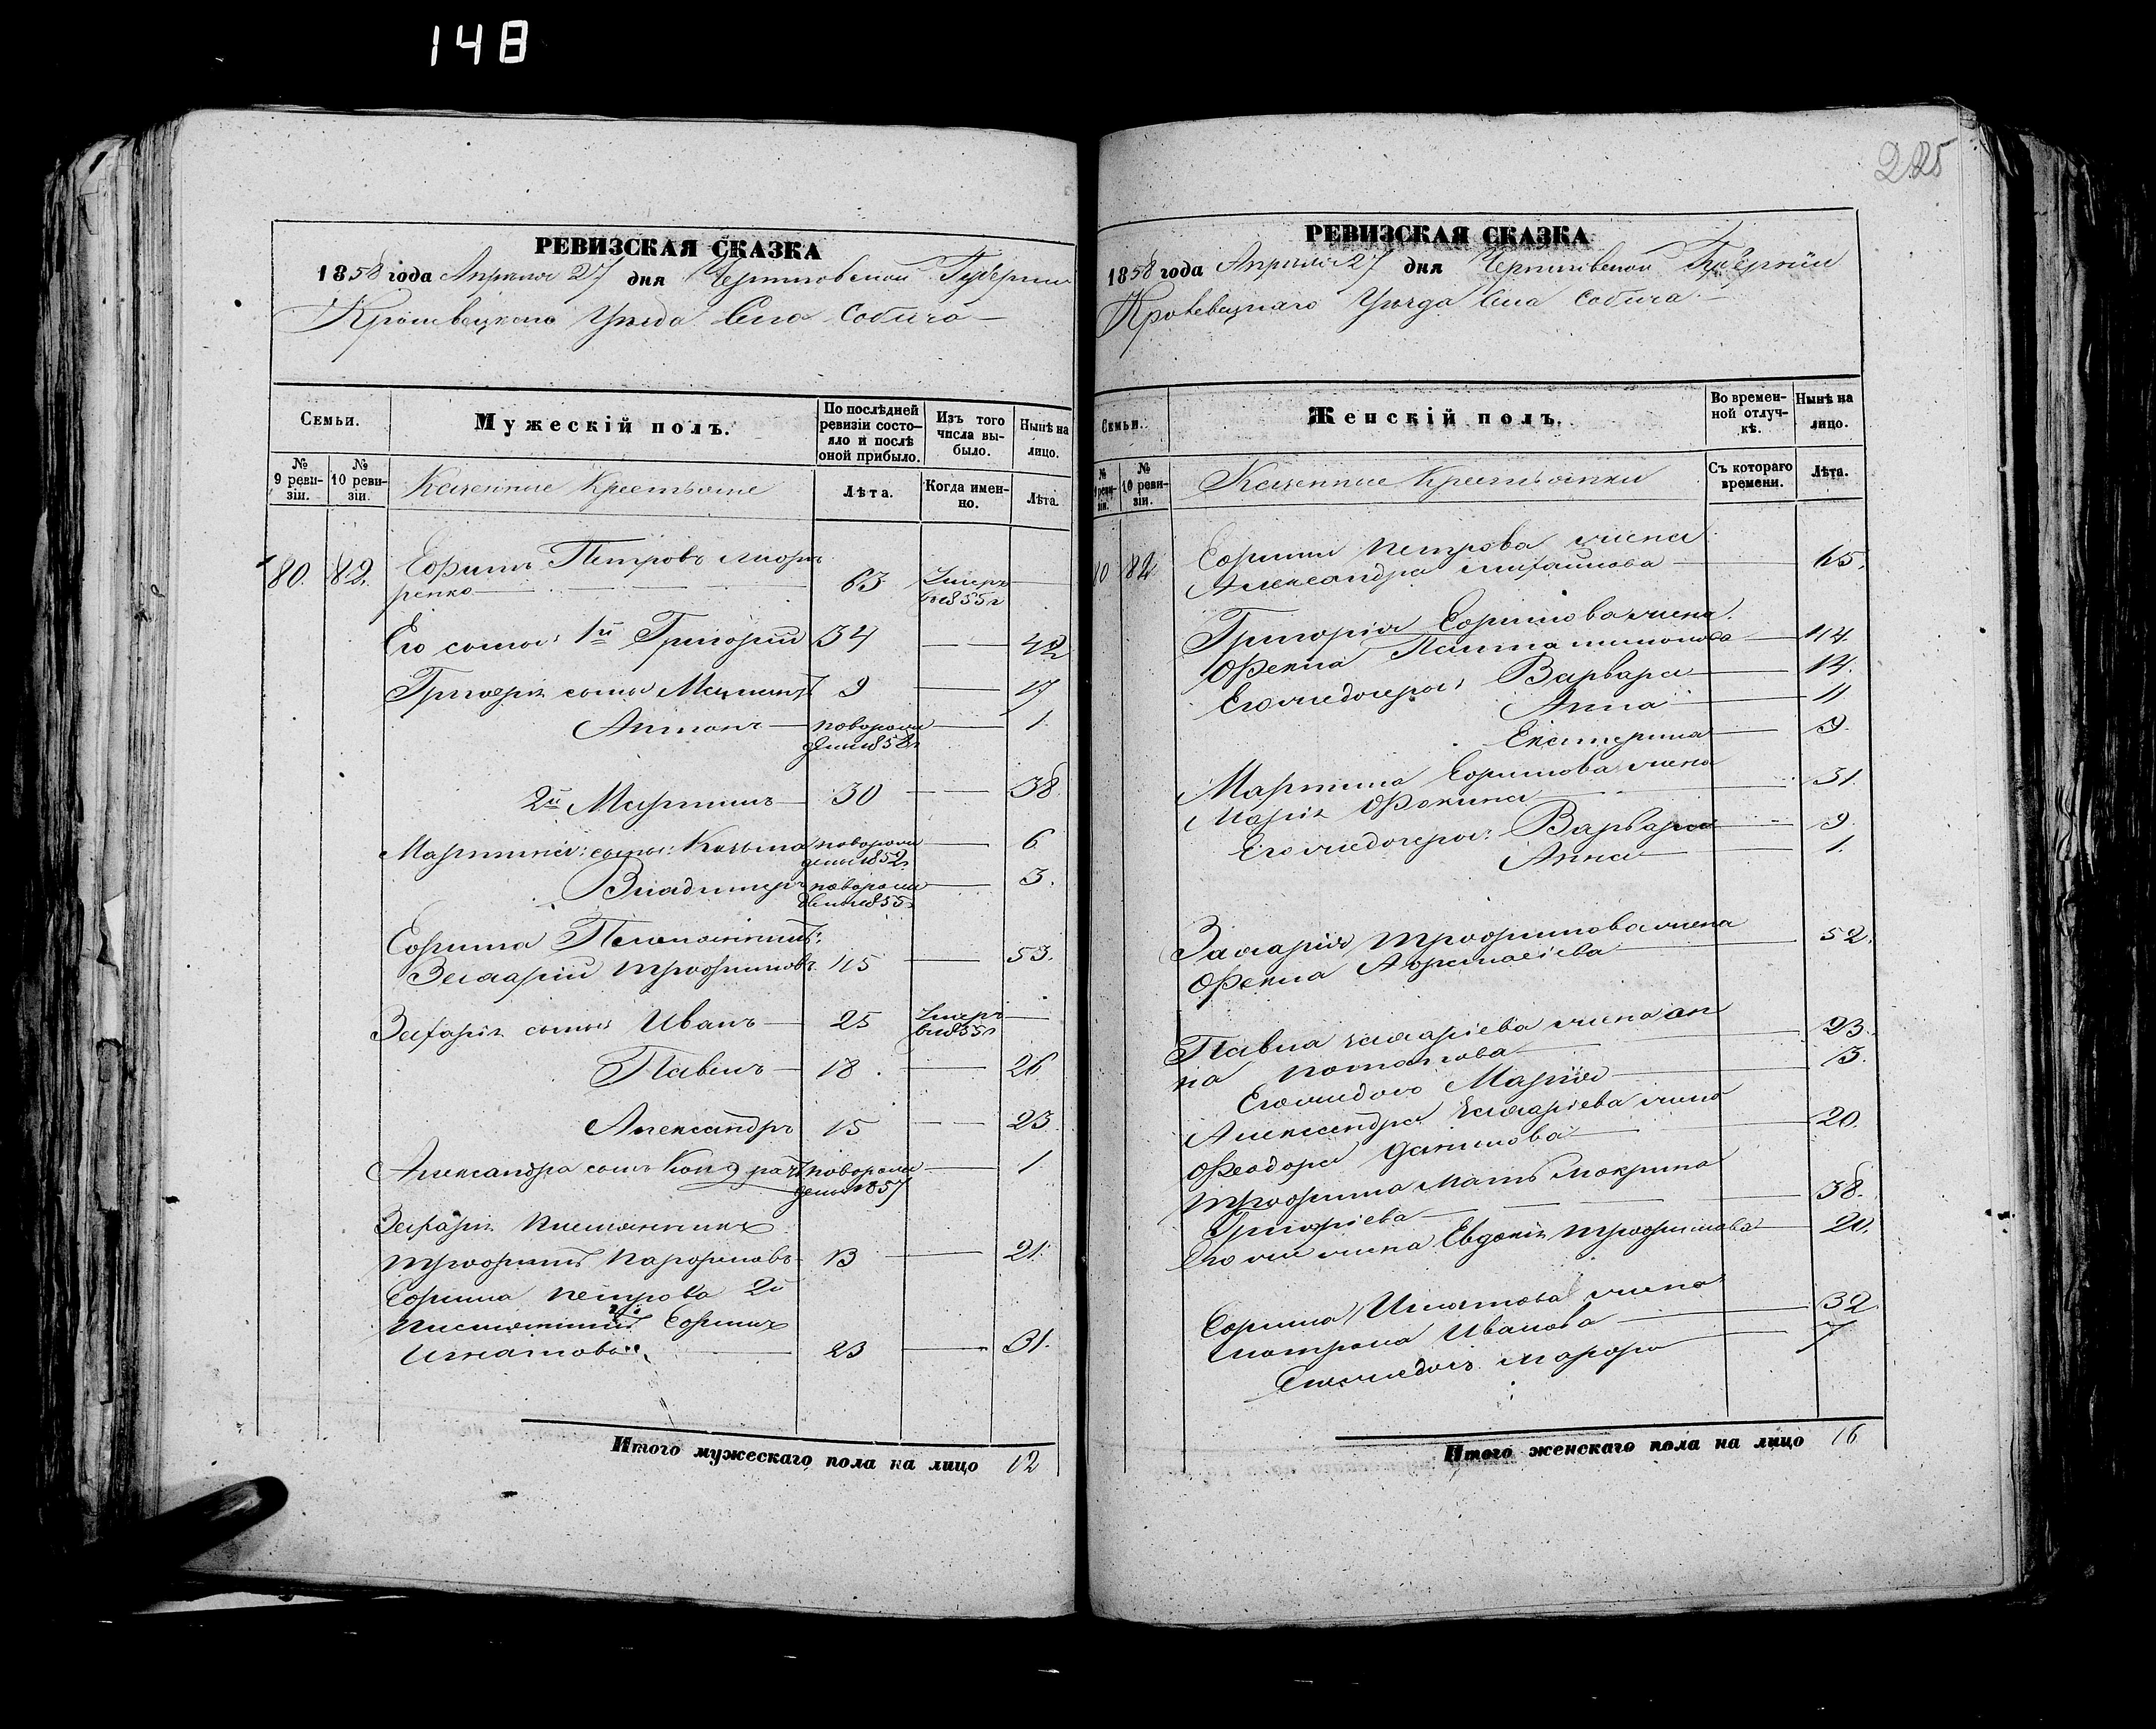 148
225
РЕВИЗСКАЯ СКАЗКА
1858 года Апреля 27 дня Черниговской Губернии
Кролевецкого Уезда Села Собича
Семьи.
Мужескій полъ.
По послѣдней ревизіи состояло и послѣ оной прибыло.
Изъ того числа выбыло.
Нынѣ на лицо.
№ 9 ревизіи.
№ 10 ревизіи.
Казенные Крестьяне
Лѣта.
Когда именно.
Лѣта.
80. 82. Ефимъ Петровъ
ренко 63 Умеръ в 1855 г
Его сыны 1й Григорій 34 42
Григорія сыны 9 17
Антонъ новорожденъ 1
2й Мартинъ 30 38
Мартина сыны: Козьма новорожденъ 1852 6
Владимеръ новорожденъ 1855 3.
Ефима Племянникъ:
Захарій Трофимовъ 45 53.
Захарія сыны Иванъ 25 Умеръ в 1855 г
Павелъ 18 26
Александръ 15 23
Александра сынъ Кондратъ новорожденъ 1857 1
Захарія племянникъ
Трофимъ 13 21.
Ефима Петрова 2й
племянникъ Ефимъ
Игнатовъ 23 31.
Итого мужескаго пола на лицо 12
РЕВИЗСКАЯ СКАЗКА
1858 года Апреля 27 дня Черниговской Губерніи
Кролевецкаго Уезда Села Собича
Семьи.
Женскій полъ.
Во временной отлучкѣ.
Нынѣ на лицо.
№ 10 ревизіи.
Казенные Крестьянки
Съ котораго времени.
Лѣта.
82 Ефима Петрова жена
Александра Михайлова 65.
Григорія Ефимова жена
Фекла 44.
Его же дочери: Варвара 14.
Анна 11
Екатерина 9.
Мартина Ефимова жена
Марія Фокина 31.
Его же дочери: Варвара 9.
Анна 1.
Захарія Трофимова жена
Фекла 52.
Павла Захаріева жена ан
на 23.
Его же дочь Марія 3.
Александра Захаріева жена
Феодора Данилова 20.
Трофима мать Мокрина
Григоріева 38.
Его же жена Евдокія Трофимова 20.
Ефима Игнатова жена
Матрона Иванова 32
Его же дочь Марфа 7
Итого женскаго пола на лицо 16